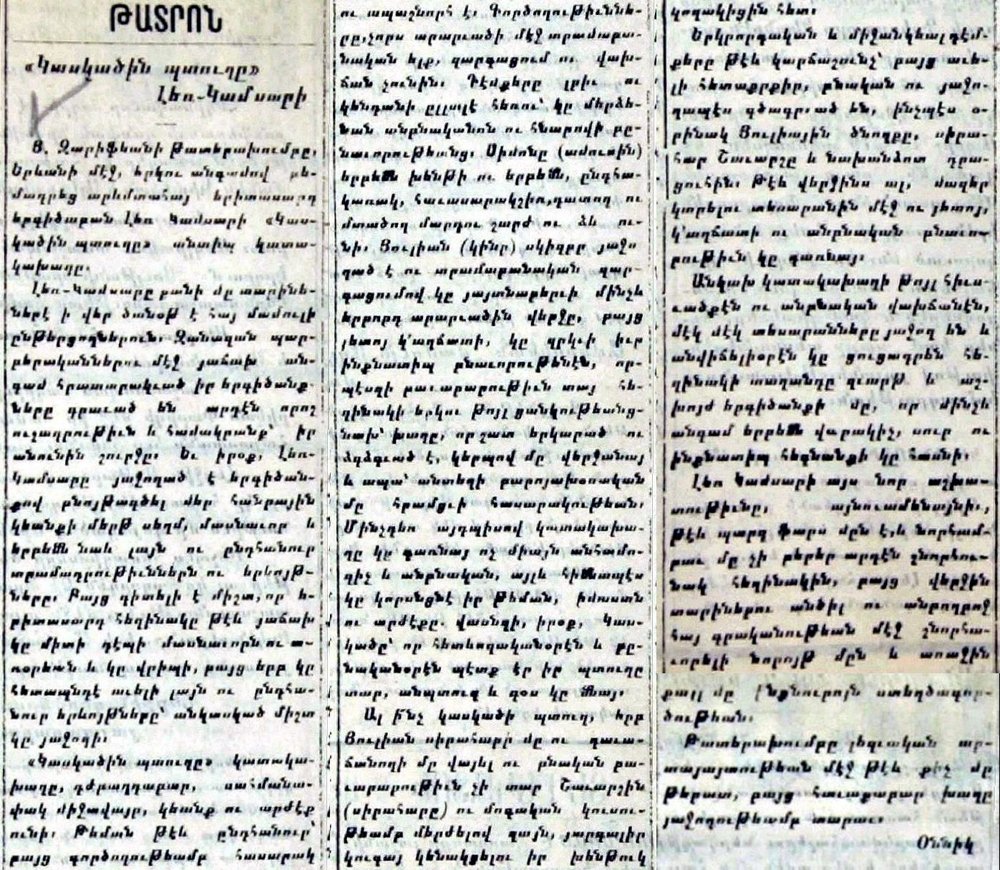 ԹԱՏՐՈՆ
«Կասկածին պտուղը»
Լեռ-Կամսարի
Յ. Զարիֆեանի թատերախումբը,
Երեւանի մէջ, երկու անգամով բե-
մադրեց արեւմտահայ երիտասարդ
երգիծաբան Լեռ Կամսարի «Կաս-
կածին պտուղը» անտիպ կատա-
կախաղը.
Լեռ-Կամսարը քանի մը տարինե-
ներէ ի վեր ծանօթ է հայ մամուլի
ընթերցողներուն. Զանազան պար-
բերականներու մէջ յաճախ ան-
գամ հրատարակուած իր երգիծանք-
ները գրաւած են արդէն որոշ
ուշադրութիւն և համակրանք՝ իր
անունին շուրջը. Եւ իրօք, Լեռ-
Կամսարը յաջողած է երգիծան-
քով բնութագծել մեր հանրային
կեանքի մերթ սեղմ, մասնաւոր և
երբեմն նաև լայն ու ընդհանուր
տրամադրութիւններն ու երևոյթ-
ները. Բայց դիտելի է միշտ, որ ե-
րիտասարդ հեղինակը թէև յաճախ
կը միտի դէպի մասնաւորն ու ա-
ռօրեան և կը վրիպի, բայց երբ կը
հետապնդէ աւելի լայն ու ընդհա-
նուր երևոյթները՝ անկասկած միշտ
կը յաջողի.
«Կասկածին պտուղը» կատակա-
խաղը, դժբաղդաբար, սահմանա-
փակ միջավայր, կեանք ու արժէք
ունի. Թեման թէև ընդհանուր՝
բայց գործողութեամբ հասարակ
ու ապաշնորհ է. Գործողութիւննե-
րը, չորս արարւածի մէջ տրամաբա-
նական ելք, զարգացում ու վախ-
ճան չունին. Դէմքերը լրիւ ու
կենդանի ըլլալէ հեռու՝ կը մերձե-
նան անբնականոն ու հնարովի բը-
նաւորութեանց. Սիմոնը (ամուսին)
երբեմն խենթի ու երբեմն, ընդհա-
կառակ, հաւասարակշիռ, դատող ու
մտածող մարդու շարժ ու ձև ու-
նի. Յուլիան (կինը) սկիզբը յաջո
ղած է ու տրամաբանական զար-
գացումով կը յայտնաբերւի մինչև
երրորդ արարւածին վերջը, բայց
յետոյ կ՚աղճատի, կը զրկւի իւր
ինքնատիպ բնաւորութենէն, որ-
պէսզի բաւարարութիւն տայ հե-
ղինակի երկու թոյլ ցանկութեանց.
նախ՝ խաղը, որ շատ երկարած ու
ձգձգւած է, կերպով մը վերջանայ
և ապա՝ անտեղի բարոյախօսական
մը հրամցւի հասարակութեան.
Մինչդեռ այդպիսով կատակախա-
ղը կը դառնայ ոչ միայն անհամո-
զիչ և անբնական, այլև հիմնապէս
կը կորսնցնէ իր թեման, իմաստն
ու արժէքը. վասնզի, իրօք, Կաս-
կածը՝ որ հետևողականօրէն և բը-
նականօրէն պէտք էր իր պտուղը
տար, անպտուղ և զօս կը մնայ.
Ալ ի՞նչ կասկածի պտուղ, երբ
Յուլիան սիրահարի մը ու դաւա-
ճանողի մը վայել ու բնական բա-
ւարարութիւն չի տար Շաւարշին
(սիրահարը) ու մոգական կուսու-
թեամբ մերժելով զայն, յարգալիր
կուգայ կենակցելու իր խենթուկ
կողակիցին հետ.
Երկրորդական և միջանկեալ դէմ-
քերը թէև կարճաշունչ՝ բայց աւե-
լի հետաքրքիր, բնական ու յաջո-
ղապէս գծագրած են, ինչպէս օ-
րինակ Յուլիային ծնողքը, սիրա-
հար Շաւարշը և նախանձոտ դրա-
ցուհին. Թէև վերջինս ալ, մազեր
կտրելու տեսարանին մէջ ու յետոյ,
կ՚աղճատի ու անբնական բնաւո-
րութիւն կը դառնայ.
Անկախ կատակախաղի թոյլ հիւս-
ւածքէն ու անբնական վախճանէն,
մէկ մէկ տեսարանները յաջող են և
անվիճելիօրէն կը ցուցադրեն հե-
ղինակի տաղանդը զւարթ և աշ-
խոյժ երգիծանքի մը, որ մինչև
անգամ երբեմն վարակիչ, սուր ու
ինքնատիպ հեգնանքի կը հասնի.
Լեռ Կամսարի այս նոր աշխա-
տութիւնը, այնուամենայնիւ,
թէև պարզ ֆարս մըն է, և նորհամ-
բաւ մը չի բերեր արդէն շնորհու-
նակ հեղինակին, բայց վերջին
տարիներու անծիլ ու անբողբոջ
հայ գրականութեան մէջ շնորհա-
ւորելի նորոյթ մըն և առաջին
քայլ մը ինքնուրոյն ստեղծագոր-
ծութեան.
Թատերախումբը լեզւական ար-
տայայտութեան մէջ թէև քիչ մը
թերատ, բայց հաւաքաբար խաղը
յաջողութեամբ տարաւ.
Օննիկ